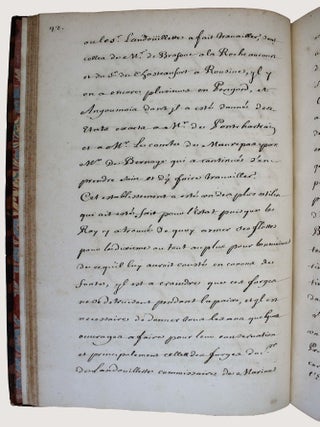 92.
ou le Sr. Landoüillette a fait travailler, dont
celles de Mr. de a la Rochefoucaut
et du Sr. de a Rousines, il y
en a encores plusieurs en Perigord, et
Angoumois dont il a esté donnée des
Etats exacts a Mr. de Pontchartrain
et a Mr. Le Comte de Maurepas par
Mr. de Bernage qui a continüé d'en
prendre soin et d'y faire travailler.
Cet establissement a esté un des plus utiles
qui ait esté fait pour l'Estat puisque le
Roy y a trouvé de quoy armer ses flottes
pour le dixieme au tout au plus pour le
de ce qu'il luy auroit cousté en canons de
fontes, il est a craindre que ces forges
ne se detruisent pendant la paix, et il est
necessaire de donner tous les ans quelques
ouvrages a faire pour leur conservation
et principalement celles des forges du Sr.
de Landoüillette commissaire de Marine